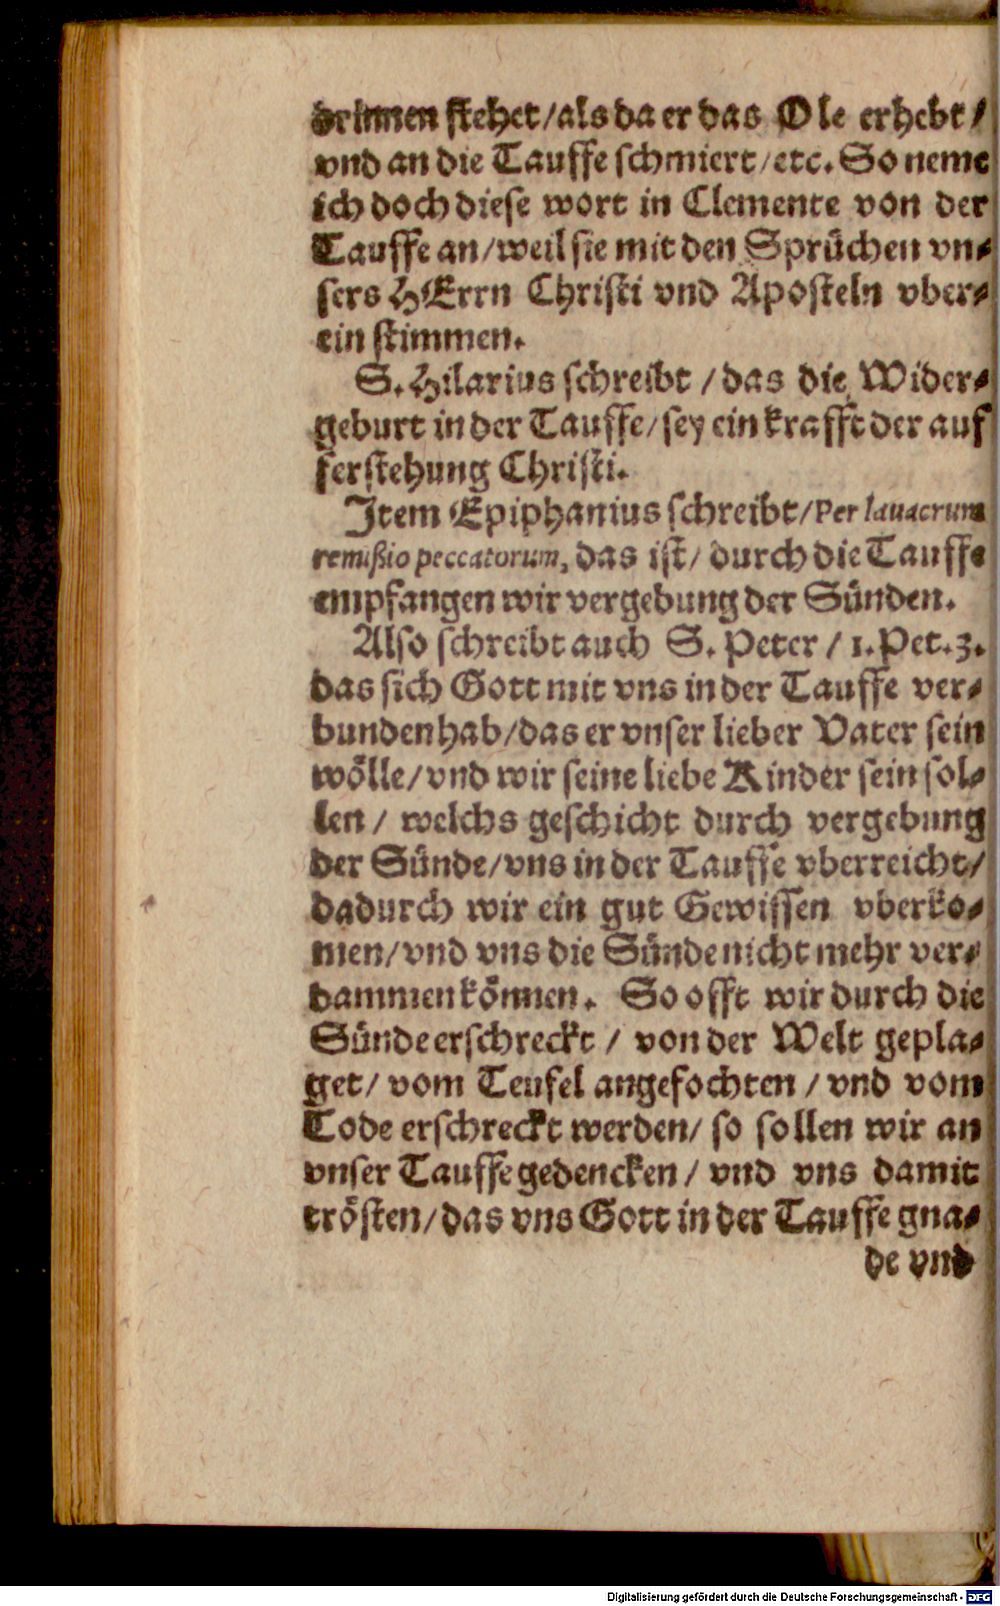 drinnen stehet/als da er das Ole erhebt/
vnd an die Tauffe schmiert/etc. So neme
ich doch diese wort in Clemente von der
Tauffe an/weil sie mit den Sprüchen vn-
sers HErrn Christi vnd Aposteln vber-
ein stimmen.
S. Hilarius schreibt/das die Wider-
geburt in der Tauffe/sey ein krafft der auf
ferstehung Christi.
Item Epiphanius schreibt/Per lauacrum
remißio peccatorum, das ist/durch die Tauffe
empfangen wir vergebung der Sünden.
Also schreibt auch S. Peter/1. Pet. 3.
das sich Gott mit vns in der Tauffe ver-
bunden hab/das er vnser lieber Vater sein
wölle/vnd wir seine liebe Kinder sein sol-
len/welchs geschicht durch vergebung
der Sünde/vns in der Tauffe vberreicht/
dadurch wir ein gut Gewissen vberko-
men/vnd vns die Sünde nicht mehr ver-
dammen können. So offt wir durch die
Sünde erschreckt/von der Welt gepla-
get/vom Teufel angefochten/vnd vom
Tode erschreckt werden/so sollen wir an
vnser Tauffe gedencken/vnd vns damit
trösten/das vns Gott in der Tauffe gna-
de vnd
Digitalisierung gefördert durch die Deutsche Forschungsgemeinschaft - DFG